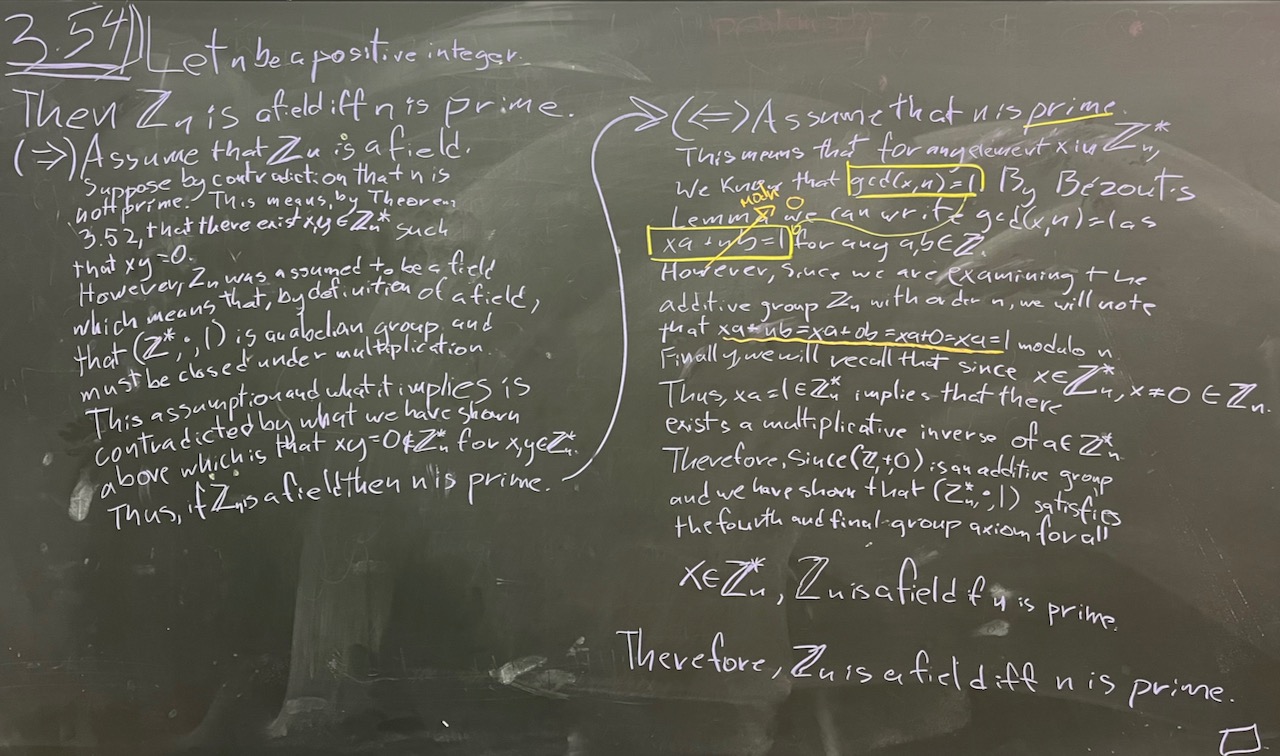 3.54) Let n be a positive integer.
Then ℤₙ is a field iff n is prime.
(⇒) Assume that ℤₙ is a field.
Suppose by contradiction that n is
not prime. This means, by Theorem
3.52, that there exist x,y ∈ ℤₙ* such
that xy = 0.
However, ℤₙ was assumed to be a field
which means that, by definition of a field,
that (ℤ*, ·, 1) is an abelian group and
must be closed under multiplication.
This assumption and what it implies is
contradicted by what we have shown
above which is that xy = 0 ∉ ℤₙ* for x,y ∈ ℤₙ*.
Thus, if ℤₙ is a field then n is prime.
(⇐) Assume that n is prime.
This means that for any element x in ℤₙ*,
We know that gcd(x,n) = 1. By Bézout's
Lemma we can write gcd(x,n) = 1 as
xa + nb = 1 for any a,b ∈ ℤ.
However, since we are examining the
additive group ℤₙ with order n, we will note
that xa + nb = xa + 0b = xa + 0 = xa = 1 modulo n.
Finally, we will recall that since x ∈ ℤₙ*, x ≠ 0 ∈ ℤₙ.
Thus, xa = 1 ∈ ℤₙ* implies that there
exists a multiplicative inverse of a ∈ ℤₙ*
Therefore, since (ℤ, +, 0) is an additive group
and we have shown that (ℤₙ*, ·, 1) satisfies
the fourth and final group axiom for all
x ∈ ℤₙ*, ℤₙ is a field if n is prime.
Therefore, ℤₙ is a field iff n is prime.